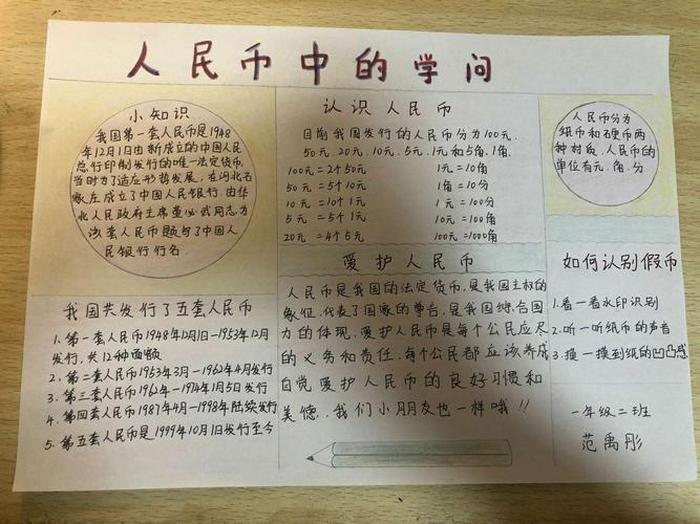 人民币中的学问
小知识
我国第一套人民币是1948
年12月1日由新成立的中国人民
总行印制发行的唯一法定货币,
当时为了适应形势发展,在河北石
家庄成立了中国人民银行,由华
北人民政府主席董必武同志为
该套人民币题写了中国人
民银行行名.
认识人民币
目前我国发行的人民币分为100元.
50元.20元.10元.5元.1元和5角.1角.
100元=2个50元 1元=10角
50元=5个10元 1角=10分
10元=10个1元 1元=100分
5元=5个1元 10元=100角
20元=4个5元 100元=1000角
人民币分为
纸币和硬币两
种 人民币的
单位有元.角.分
我国共发行了五套人民币
1.第一套人民币1948年12月1日-1953年12月
发行,共12种面额
2.第二套人民币1953年3月-1962年4月发行
3.第三套人民币1962年-1974年1月5日发行
4.第四套人民币1987年4月-1998年陆续发行
5.第五套人民币是1999年10月1日发行至今
爱护人民币
人民币是我国的法定货币,是我国主权的
象征,代表了国家的尊告,是我国综合国
力的体现.爱护人民币是每个公民应尽
的义务和责任,每个公民都应该养成
自觉爱护人民币的良好习惯和
美德..我们小朋友也一样哦!!
如何认别假币
1.看一看水印识别
2.听一听纸币的声音
3.摸一摸到纸的凹凸感
一年级二班
范禹彤